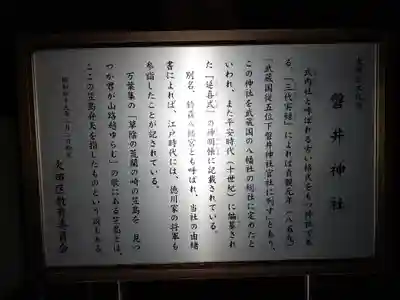 大田区文化財
磐井神社
式内社と呼ばれる古い格式をもつ神社であ
る。『三代実録』によれば貞観元年(八五九)
「武蔵国従五位下磐井神社官社に列す」とあり、
この神社を武蔵国の八幡社の総社に定めたと
いわれ、また平安時代(十世紀)に編纂され
た『延喜式』の神明帳に記載されている。
別名、鈴森八幡宮とも呼ばれ、当社の由緒
書によれば、江戸時代には、徳川家の将軍も
参詣したことが記されている。
万葉集の「草陰の荒藺の崎の笠島を 見つ
つか君が山路越ゆらむ」の歌にある笠島とは、
ここの笠島弁天を指したものという説もある
昭和四十九年二月二日指定
大田区教育委員会